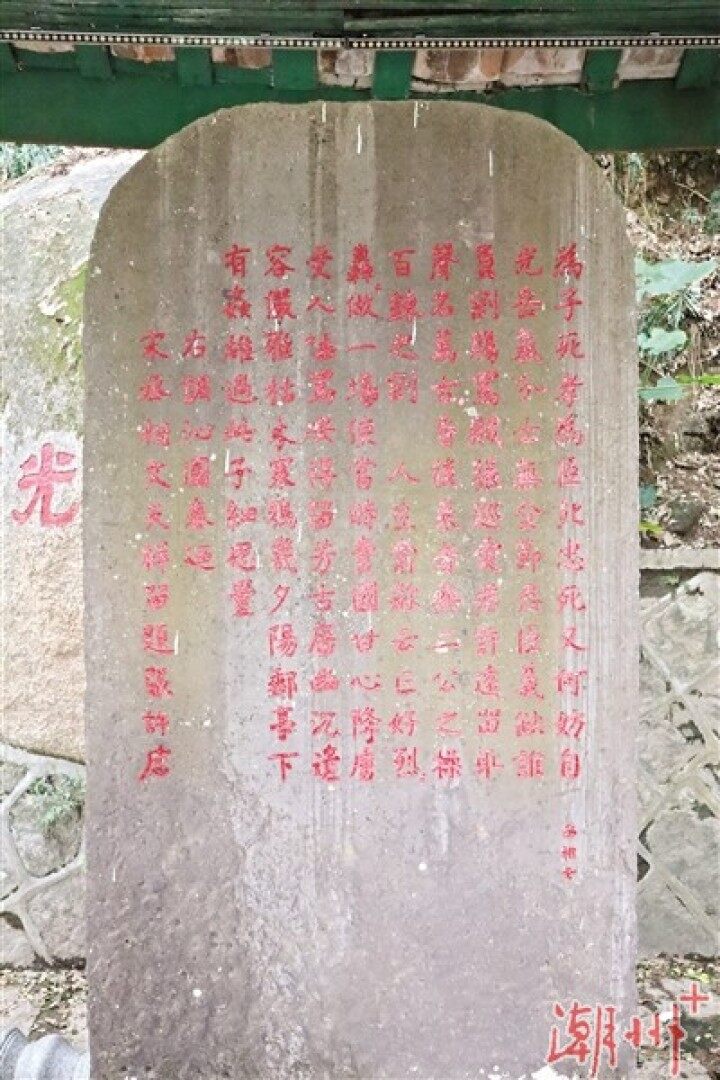 為子死孝為臣死忠死又何妨自
光岳氣分士無全節君臣義缺誰
負剛腸罵賊張巡愛君許遠留取
聲名萬古香後來者無二公之操
百鍊之剛 人生翕歘云亡好烈
轟做一場使當時賣國甘心降虜
受人唾罵安得留芳古廟幽沉遺
容儼雅枯木寒鴉幾夕陽郵亭下
有姦雄過此子細思量
右調沁園春
宋丞相文天祥留題張許庙
光
潮州+